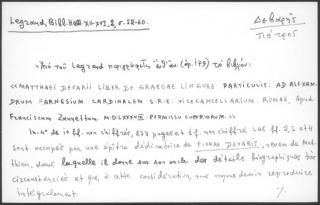 Legrand, Bibl. Hell. XV-XVI, 2, σ. 52-60.
Δεβαρῆς
Πέτρος
Ἀπὸ τοῦ Legrand περιγραφὴν (ἀρ. 179) τὸ βιβλίον:
«MATTHAEI DEVARII LIBER DE GRAECAE LINGUAE PARTICULIS. AD ALEXAN-
DRUM FARNESIUM CARDINALEM S.R.E. VICECANCELLARIUM. ROMAE, Apud
Franciscum Zannettum M.D.LXXXVIII PERMISSU SUPERIORUM.»
In-4º de 10 ff. non chiffrés, 224 pages et 1 f. non chiffré Les ff. 2, 3 et 4
sont occupés par une épître dédicatoire de PIERRE DEVARIS, neveu de Mat-
thieu, dans laquelle il donne sur son oncle des détails biographiques très
circonstanciés et que, à cette considération, nous croyons devoir reproduire
intégralement.
%